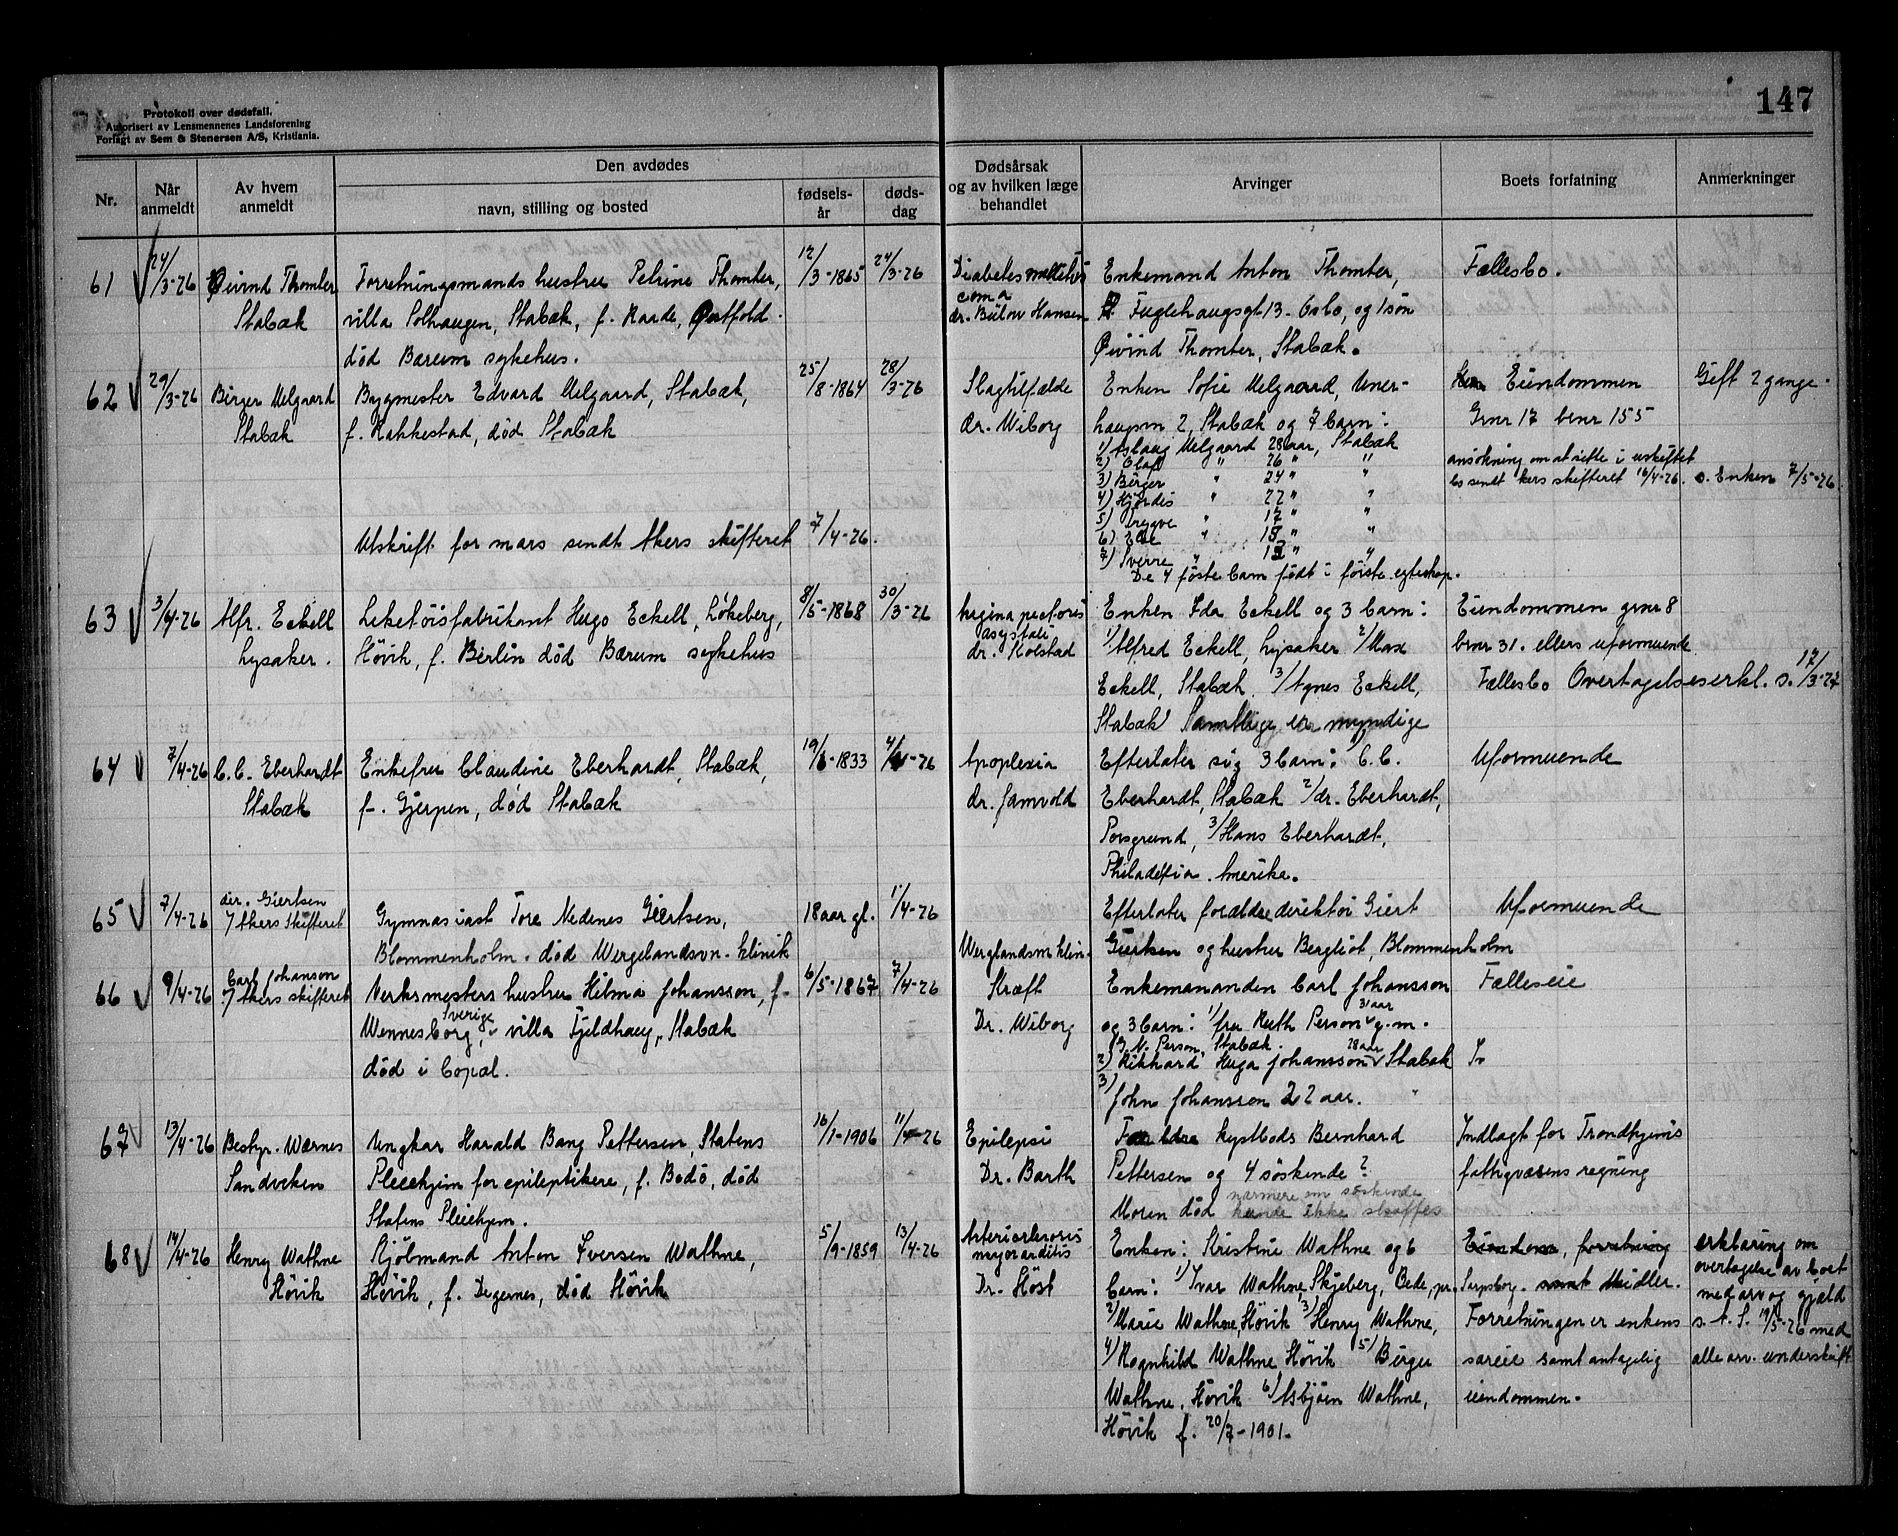 147
Protokoll over dødsfall.
Autorisert av Lensmennenes Landsforening
Forlagt av Sem & Stenersen A/S, Kristiania.
Nr.
Når anmeldt
Av hvem anmeldt
Den avdødes
navn, stilling og bosted
fødsels-år
døds-dag
Dødsårsak og av hvilken læge behandlet
Arvinger
Boets forfatning
Anmerkninger
61
24/3-26
Øivind Thomter
Stabæk
Forretningsmands hustru Petrine Thomter,
villa Solhaugen, Stabæk, f. Raade, Østfold.
død Bærum sykehus.
12/3-1865
24/3-26
Diabetes mellitus
coma
dr. Bülow Hansen
Enkemand Anton Thomter,
Fuglehaugsgt 13. Oslo, og 1 søn
Øivind Thomter, Stabæk.
Fællesbo.
62
29/3-26
Birger Melgaard
Stabæk
Bygmester Edvard Melgaard, Stabæk,
f. Rakkestad, død Stabæk
25/8-1864
28/3-26
Slagtilfælde
dr. Wiborg
Enken Sofie Melgaard, Uner-
haugvn 2, Stabæk og 7 barn:
1) Aslaug Melgaard 28 aar, Stabæk
2) Olaf " 26 " "
3) Birger " 24 " "
4) Hjørdis " 22 " "
5) Trygve " 17 " "
6) " 15 " "
7) Sverre " 12 " "
De 4 føste barn født i første egteskap.
Eiendommen
Gnr 17 bnr 155
ansøkning om at sitte i uskiftet
bo sendt Akers skifteret 16/4-26. s. Enken 7/5-26
Gift 2 gange.
Utskrift for mars sendt Akers skifteret 7/4-26.
63
3/4-26
Alfr. Eckell
Lysaker.
Leketøisfabrikant Hugo Eckell, Løkeberg,
Høvik, f. Berlin død Bærum sykehus
8/5-1868
30/3-26
Angina pectoris
asystoli
dr. Kolstad
Enken Ida Eckell og 3 barn:
1/ Alfred Eckell, Lysaker 2/ Max
Eckell, Stabæk. 3/ Agnes Eckell,
Stabæk) Samtlige er myndige
Eiendommen gnr 8
bnr 31. ellers uformuende
Fællesbo Overtagelseserkl. s. 17/3-27
64
7/4-26
C. C. Eberhardt
Stabæk
Enkefru Claudine Eberhardt, Stabæk,
f. Gjerpen, død Stabæk
19/6-1833
4/4-26
Apoplexia
dr. Jamvold
Efterlater sig 3 barn: C. C.
Eberhardt, Stabæk 2/ dr. Eberhardt,
Porsgrund, 3/ Hans Eberhardt,
Philadefia. Amerika.
Uformuende
65
7/4-26
dir. Giertsen
7 Akers skifteret
Gymnasiast Tore Nedenes Giertsen,
Blommenholm. død Wergelandsvn. klinik
18 aar gl.
1/4-26
Werglandsvn klin.
Efterlater forældre direktør Giert
Giertsen og hustru Bergliot, Blommenholm
Uformuende
66
9/4-26
Carl Johanson
7 Akers skifteret
Verksmesters hustru Hilma Johansson, f.
Wennesborg, Sverige villa Fjeldhaug, Stabæk
død i Copal.
6/5-1867
7/4-26
Kræft
Dr. Wiborg
Enkemananden Carl Johansson
og 3 barn: 1/ fru Ruth Person 31 aar g.m.
G. N. Person, Stabæk.
2) Rikhard Hugo Johansson 28 aar Stabæk
3) John Johanssen 22 aar. "
Fælleseie
67
13/4-26
Bestyr. Wærnes
Sandviken
Ungkar Harald Bang Pettersen, Statens
Pleiehjem for epileptikere, f. Bodø, død
Statens Pleiehjem.
16/1-1906
11/4-26
Epilepsi
Dr. Barth
Forældre kystlods Bernhard
Pettersen og 4 søskende?
Moren død nærmere om søskende
kunde ikke skaffes
Indlagt for Trondhjems
fattigvæsens regning
68
14/4-26
Henry Wathne
Høvik
Kjøbmand Anton Iversen Wathne,
Høvik, f. Degernes, død Høvik
5/9-1859
13/4-26
Arteriosklerosis
myocarditis
Dr. Høst
Enken: Kristine Wathne og 6
barn: 1) Ivar Wathne Skjeberg, Oede, pr. Sarpsborg.
2/ Marie Wathne, Høvik 3) Henry Wathne,
4) Ragnhild Wathne Høvik 5) Birger
Wathne, Høvik 6/ Asbjørn Wathne,
Høvik f. 20/7-1901-
Eiendom, forretning
samt Midler.
Forretningen er enkens
særeie samt antagelig
eiendommen.
erklæring om
overtagelse av boet
med arv og gjæld
s. A. S. 19/5-26 med
alle arv. underskrift